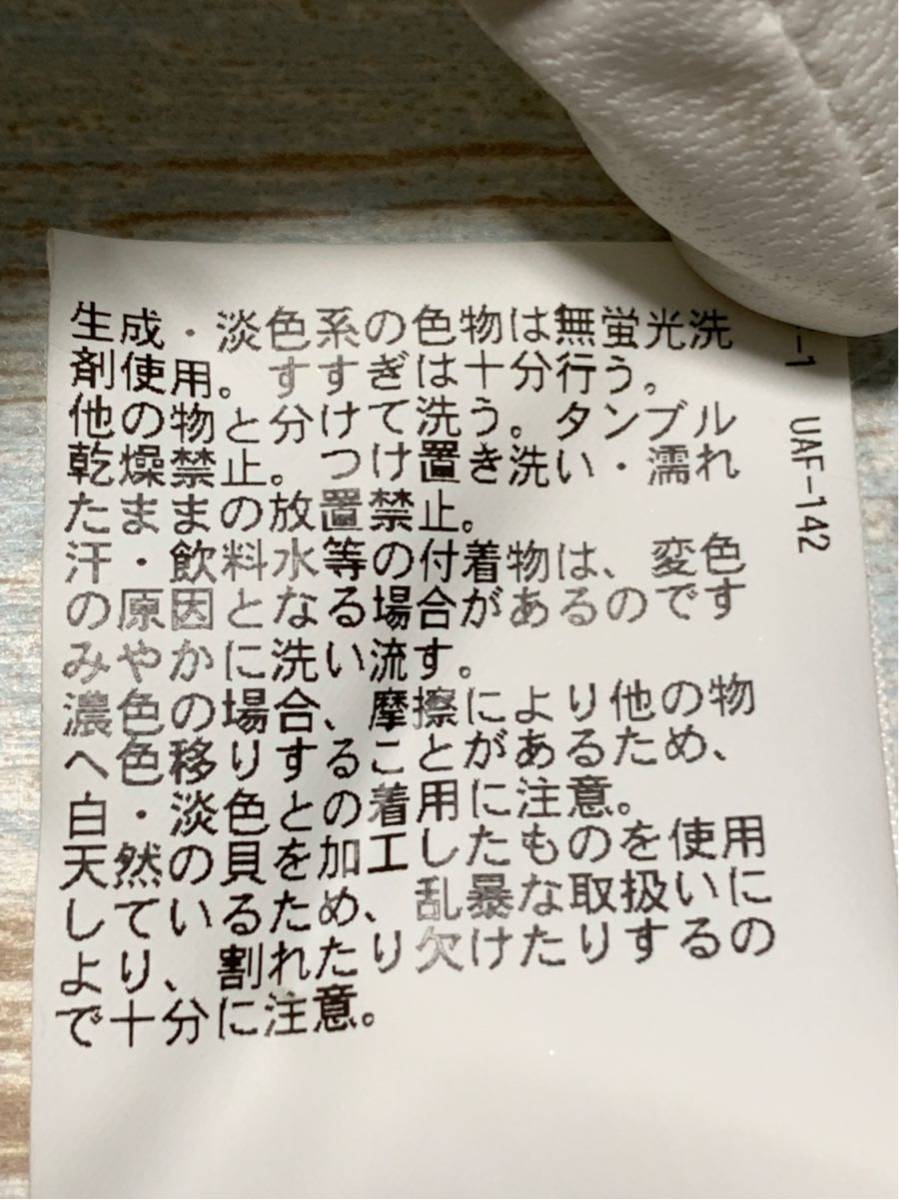 生成・淡色系の色物は無蛍光洗
剤使用。すすぎは十分行う。
他の物と分けて洗う。タンブル
乾燥禁止。つけ置き洗い・濡れ
たままの放置禁止。
汗・飲料水等の付着物は、変色
の原因となる場合があるのです
みやかに洗い流す。
濃色の場合、摩擦により他の物
へ色移りすることがあるため、
白・淡色との着用に注意。
天然の貝を加工したものを使用
しているため、乱暴な取扱いに
より、割れたり欠けたりするの
で十分に注意。
-1 UAF-142